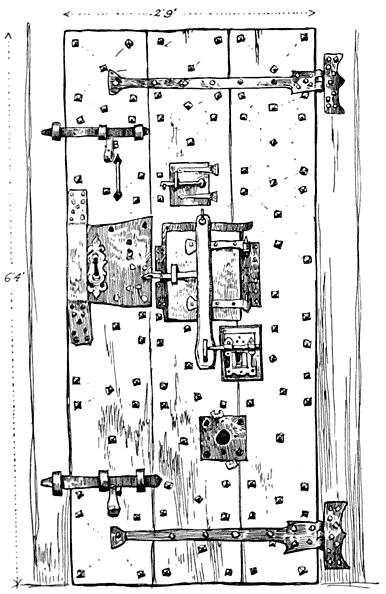 2'9"
6'4"